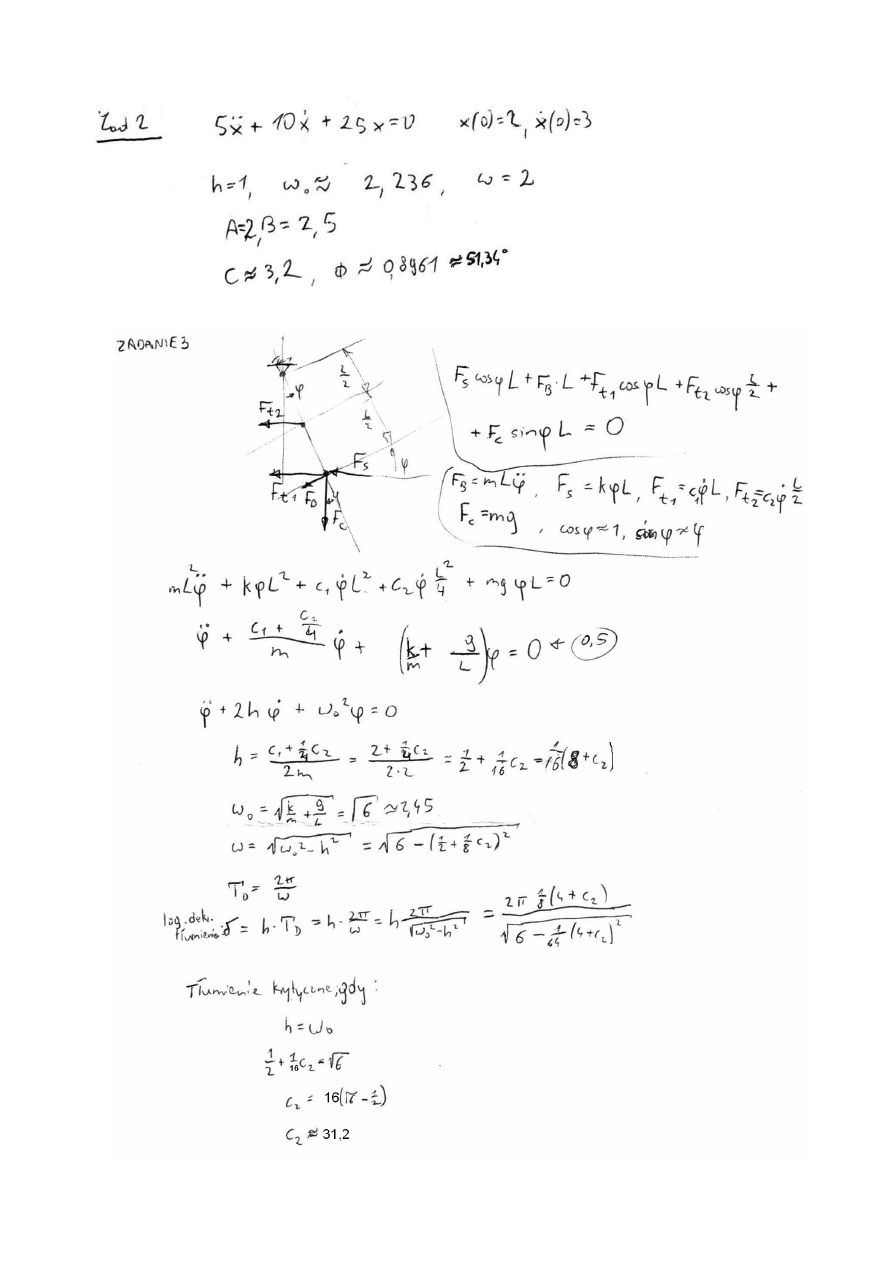 Zad 2 5ẍ + 10ẋ + 25x = 0 x(0)=2, ẋ(0)=3
h=1, ω₀ ≈ 2,236, ω = 2
A=2, B = 2,5
C ≈ 3,2, Φ ≈ 0,8961 ≈ 51,34°
ZADANIE 3
L/2
L/2
φ
Ft2
Fs
φ
Ft1 FB φ
Fc
Fs cosφ L + FB·L + Ft1 cosφ L + Ft2 cosφ L/2 +
+ Fc sinφ L = 0
FB = mLφ̈, Fs = kφL, Ft1 = c₁φ̇L, Ft2 = c₂φ̇ L/2
Fc = mg, cosφ ≈ 1, sinφ ≈ φ
mL²φ̈ + kφL² + c₁φ̇L² + c₂φ̇ L²/4 + mgφL = 0
φ̈ + (c₁ + c₂/4)/m φ̇ + (k/m + g/L)φ = 0 ← 0,5
φ̈ + 2hφ̇ + ω₀²φ = 0
h = (c₁ + 1/4 c₂)/2m = (2 + 1/4 c₂)/2·2 = 1/2 + 1/16 c₂ = 1/16(8 + c₂)
ω₀ = √(k/m + g/L) = √6 ≈ 2,45
ω = √(ω₀² - h²) = √(6 - (1/2 + 1/8 c₂)²)
T_D = 2π/ω
log. dekr. tłumienia: δ = h·T_D = h·2π/ω = h 2π/√(ω₀² - h²) = 2π 1/8(4 + c₂)/√(6 - 1/64(4 + c₂)²)
Tłumienie krytyczne, gdy:
h = ω₀
1/2 + 1/16 c₂ = √6
c₂ = 16(√6 - 1/2)
c₂ ≈ 31,2